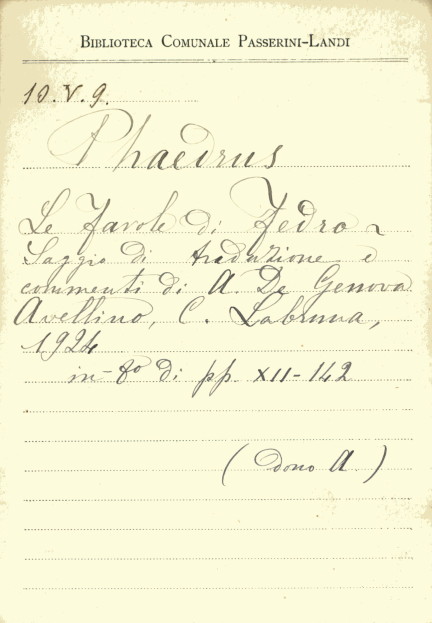 BIBLIOTECA COMUNALE PASSERINI-LANDI
10.V.9.
Phaedrus
Le Favole di Fedro ~
Saggio di traduzione e
commenti di A. De Genova
Avellino, C. Labruna,
1924
in-8º di pp. XII-142
(dono A.)